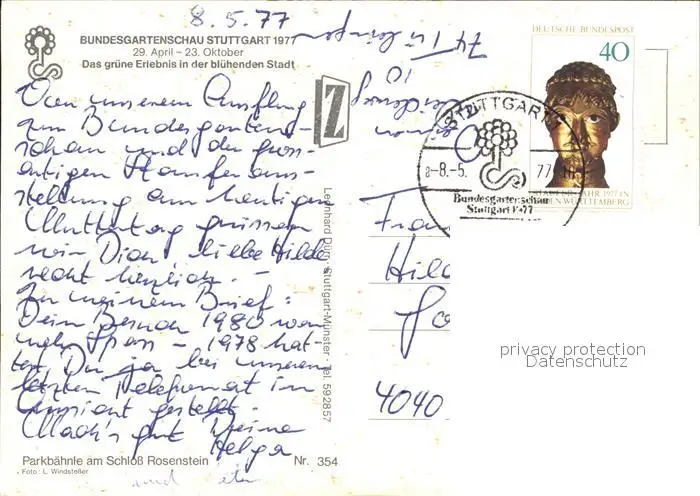 8.5.77
BUNDESGARTENSCHAU STUTTGART 1977
29. April – 23. Oktober
Das grüne Erlebnis in der blühenden Stadt
Von unserem Ausflug
zur Bundesgarten-
schau und der gross-
artigen Staufer aus-
stellung am heutigen
Muttertag grüssen
wir Dich, liebe Hilde
recht herzlich. –
Zu meinem Brief:
Dein Besuch 1980 war
nur Spass – 1978 hat-
test Du ja bei unserem
letzten Telefonat in
Aussicht gestellt.
Mach's gut Deine
Helga
Parkbähnle am Schloß Rosenstein
Nr. 354
Foto: L. Windstoßer
Z
Leonhard Dürr · Stuttgart-Münster · Tel. 592857
74 Tübingen
10
DEUTSCHE BUNDESPOST
40
STUTTGART
a-8.-5.
77
Bundesgartenschau
Stuttgart 1977
STAUFERJAHR 1977 IN
BADEN-WÜRTTEMBERG
Frau
Hild
4040
privacy protection
Datenschutz